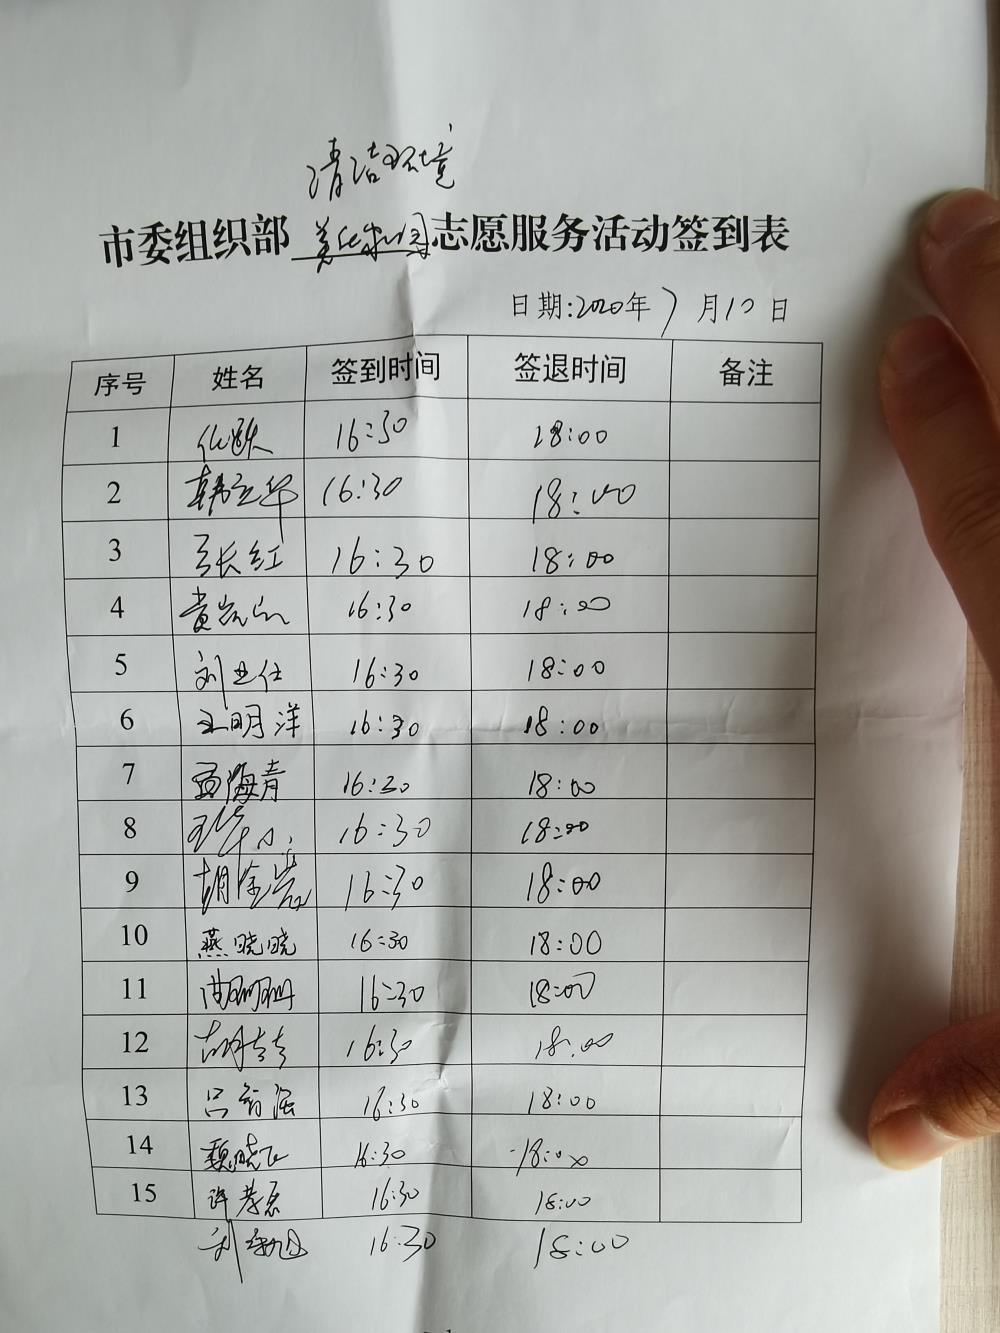 清洁环境
市委组织部 美化家园 志愿服务活动签到表
日期:2020年7月10日
序号 姓名 签到时间 签退时间 备注
1 16:30 18:00
2 韩立华 16:30 18:00
3 张长红 16:30 18:00
4 黄 16:30 18:00
5 刘世仕 16:30 18:00
6 王明洋 16:30 18:00
7 海青 16:30 18:00
8 王 16:30 18:00
9 胡金岩 16:30 18:00
10 燕晓晓 16:30 18:00
11 曲珊珊 16:30 18:00
12 胡 16:30 18:00
13 吕 强 16:30 18:00
14 魏晓飞 16:30 18:00
15 许 磊 16:30 18:00
刘 16:30 18:00